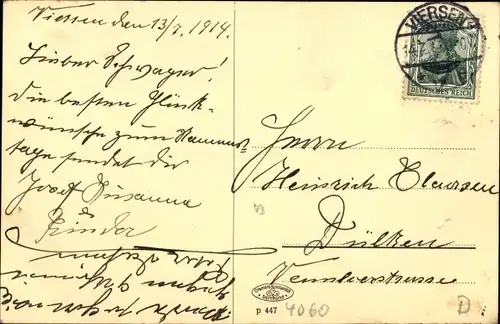 Viersen den 13/7. 1914.
Lieber Schwager!
die besten Glück-
wünsche zum Namens-
tage sendet dir
Josef Susanna
& Kinder
VIERSEN
DEUTSCHES REICH
Herrn
Heinrich Claassen
Dülken
Venloerstrasse
p 447
4060
D